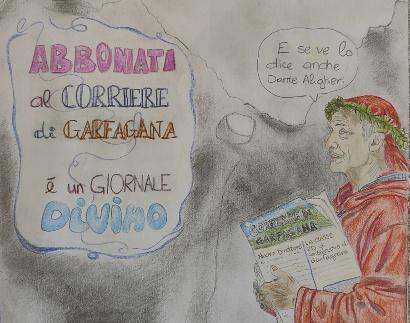 ABBONATI
al CORRIERE
di GARFAGANA
é un GIORNALE
DIVINO
E se ve lo
dice anche
Dante Aligheri
CORRIERE DI
GARFAGANA
Nuovo Direttore
LA CLASSE